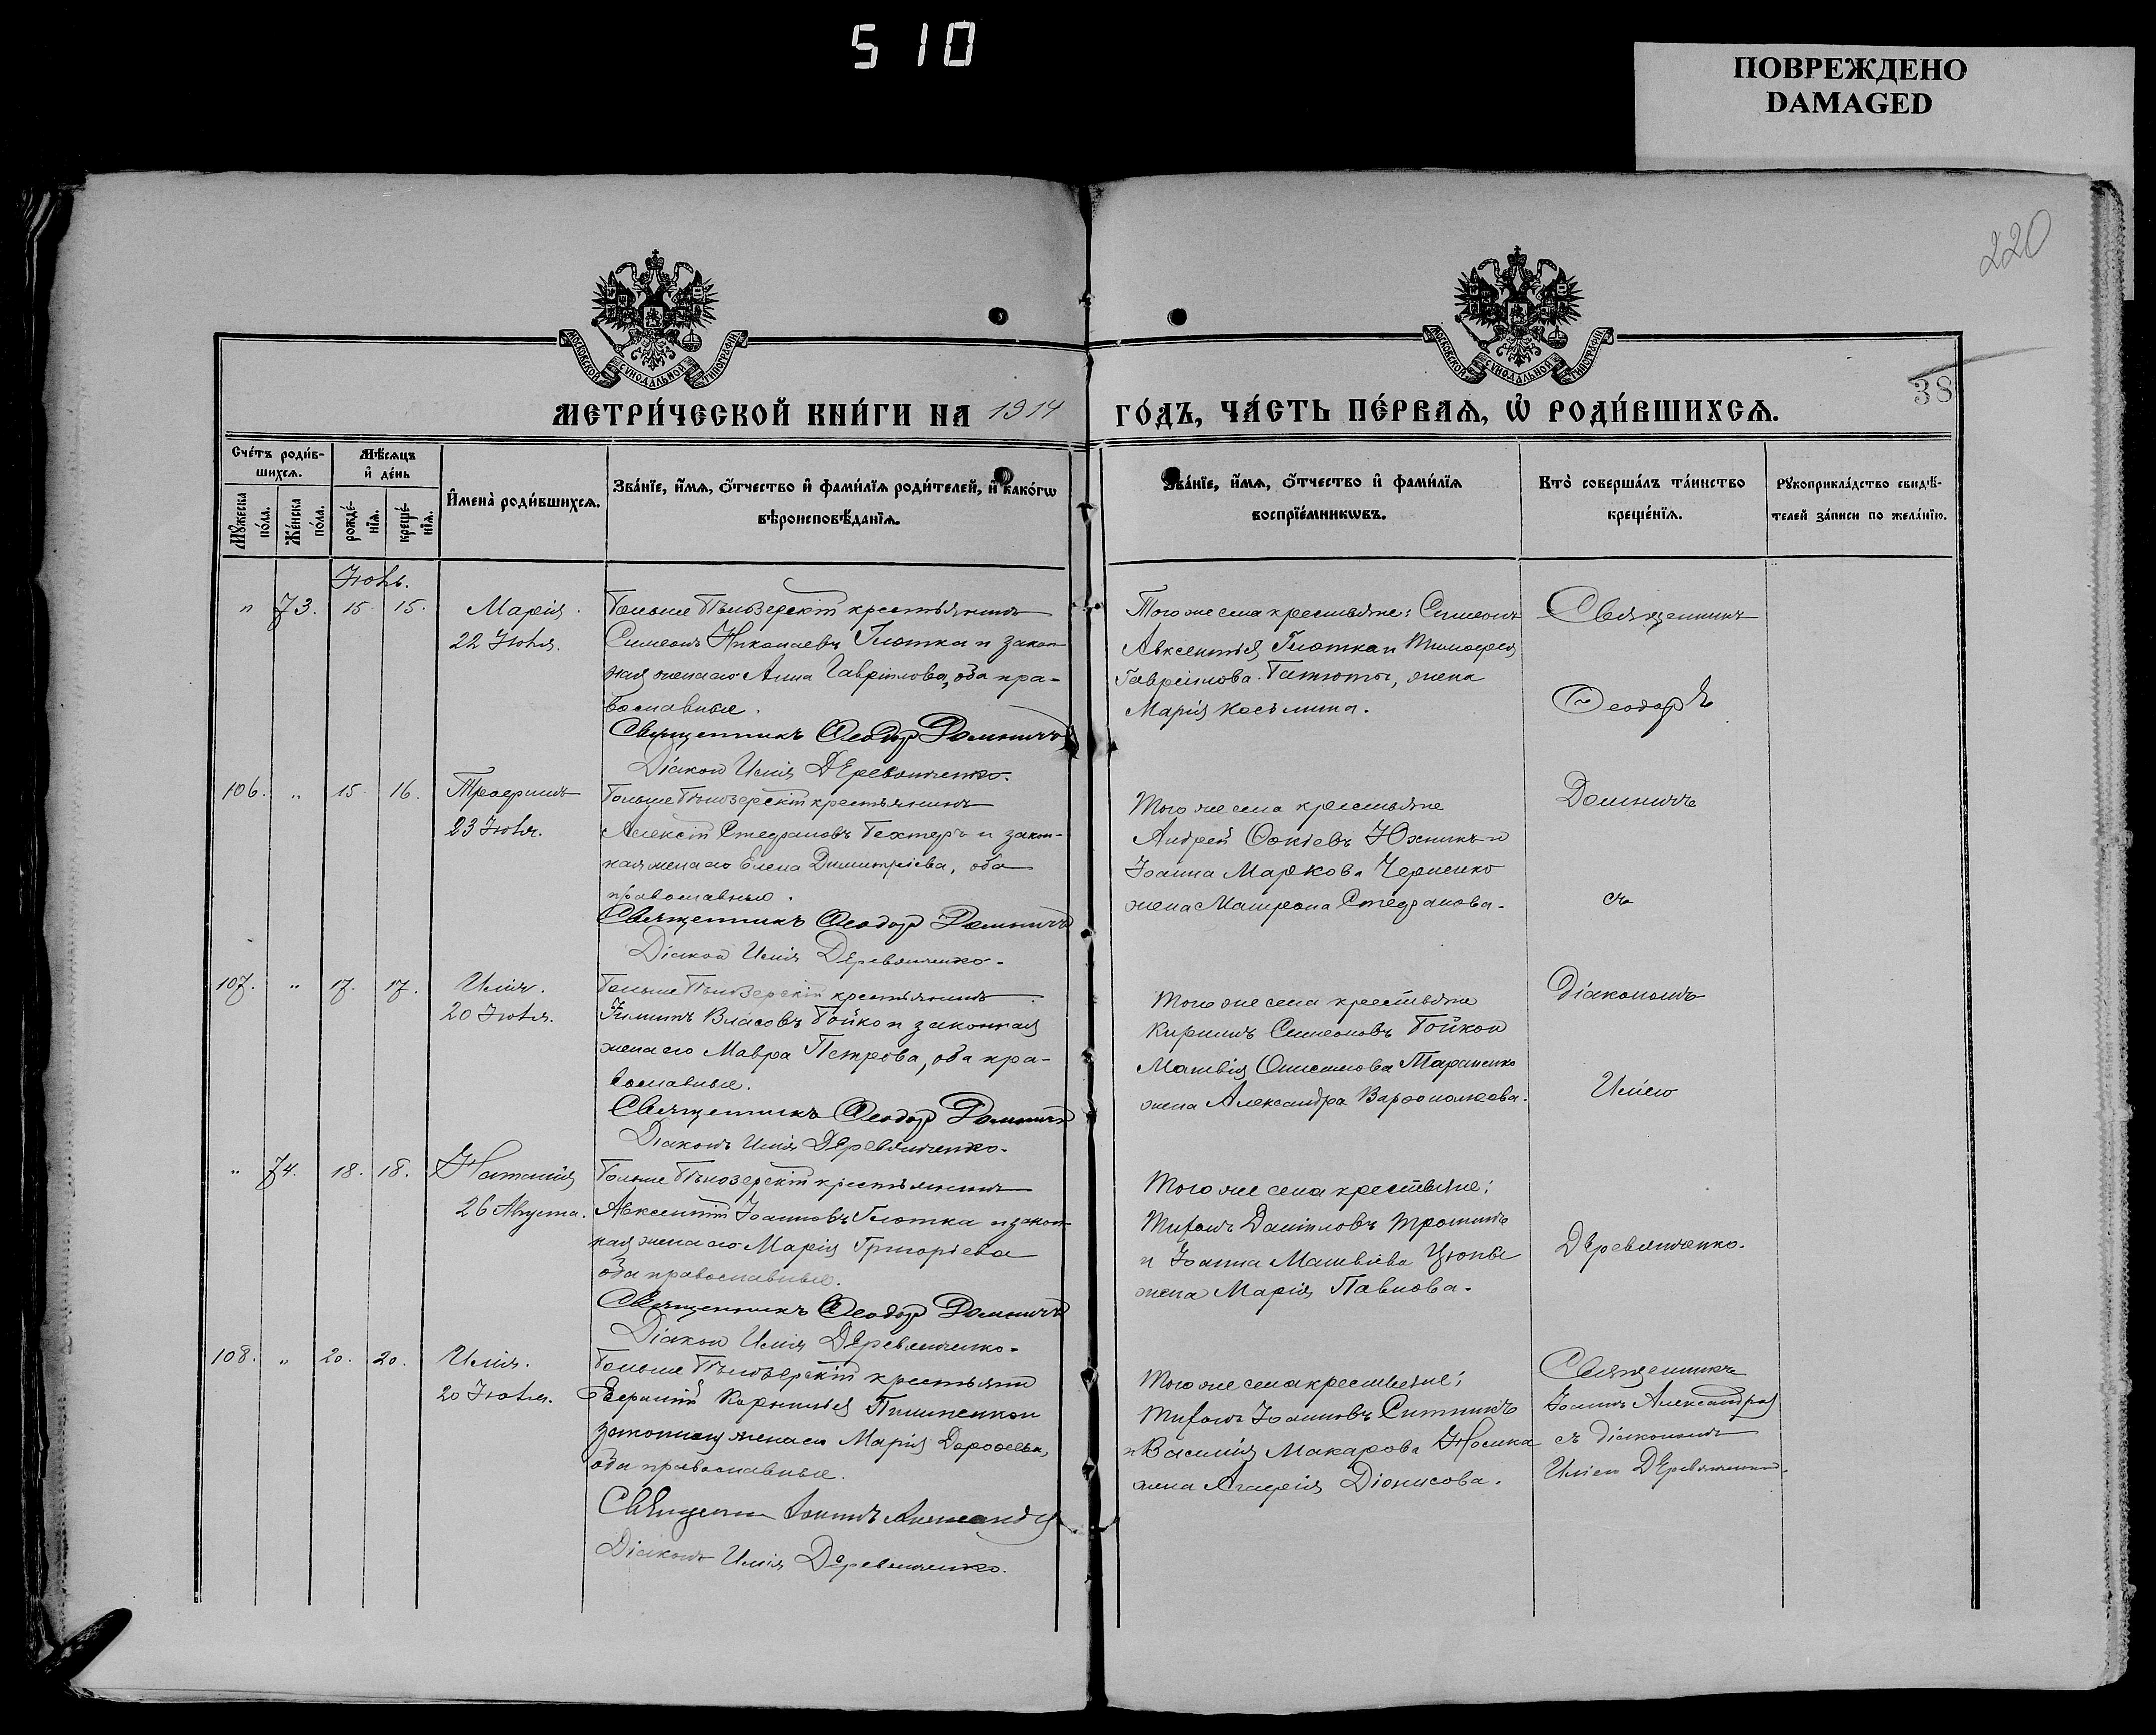 510
ПОВРЕЖДЕНО
DAMAGED
220
38
МОСКОВСКОЙ СѴНОДАЛЬНОЙ ТИПОГРАФІИ
МОСКОВСКОЙ СѴНОДАЛЬНОЙ ТИПОГРАФІИ
МЕТРИ́ЧЕСКОЙ КНИ́ГИ НА 1914 ГО́ДЪ, ЧА́СТЬ ПЕ́РВАѦ, Ѡ҆ РОДИ́ВШИХСѦ.
Сче́тъ роди́в-
шихсѧ.
Мѣ́сѧцъ
и҆ де́нь
Мꙋ́жеска по́ла.
Же́нска по́ла.
рожде́-нїѧ.
креще́-нїѧ.
И҆мена̀ роди́вшихсѧ.
Зва́нїе, и҆́мѧ, ѻ҆́тчество и҆ фами́лїѧ роди́телей, и҆ како́гѡ
вѣроисповѣ́данїѧ.
Зва́нїе, и҆́мѧ, ѻ҆́тчество и҆ фами́лїѧ
воспрїе́мникѡвъ.
Кто̀ соверша́лъ та́инство
креще́нїѧ.
Рꙋкоприкла́дство свидѣ́-
телей за́писи по жела́нїю.
Іюнь.
" 73. 15. 15. Марія.
22 Іюля.
Больше Бѣлозерскій крестьянинъ
Симеонъ Николаевъ Глотка и закон-
ная жена его Анна Гавріилова, оба пра-
вославные.
Священникъ Ѳеодоръ Домничъ
Діаконъ Илія Деревянченко.
Того же села крестьяне: Симеонъ
Авксентіев Глотка и Тимоѳея
Гавріилова жена
Марія Косьмина.
Священникъ
Ѳеодоръ
Домничъ
съ
діакономъ
Иліею
Деревянченко.
106. " 15. 16. Трофимъ
23 Іюля.
Больше Бѣлозерскій крестьянинъ
Алексій Стефановъ Бехтеръ и закон-
ная жена его Елена Димитріева, оба
православные.
Священникъ Ѳеодоръ Домничъ
Діаконъ Илія Деревянченко.
Того же села крестьяне
Андрей Фокіевъ Южникъ и
Іоанна Маркова Черненко
жена Матрона Стефанова.
107. " 17. 17. Илія.
20 Іюля.
Больше Бѣлозерскій крестьянинъ
Власовъ Бойко и законная
жена его Мавра Петрова, оба пра-
вославные.
Священникъ Ѳеодоръ Домничъ
Діаконъ Илія Деревянченко.
Того же села крестьяне
Кириллъ Симеоновъ Бойко и
Матвія Онисимова Тараненко
жена Александра Варѳоломеева.
" 74. 18. 18. Наталія
26 Августа.
Больше Бѣлозерскій крестьянинъ
Авксентій Іоанновъ Глотка и закон-
ная жена его Марія Григоріева
оба православные.
Священникъ Ѳеодоръ Домничъ
Діаконъ Илія Деревянченко.
Того же села крестьяне:
Тихонъ Даніиловъ
и Іоанна Матвіева Цюпы
жена Марія Павлова.
108. " 20. 20. Илія.
20 Іюля.
Больше Бѣлозерскій крестьянинъ
Корниліев
законная жена его Марія Дороѳеева,
оба православные.
Священникъ Іоаннъ
Діаконъ Илія Деревянченко.
Того же села крестьяне:
Тихонъ Іоанновъ Ситникъ
и Василія Макарова Носика
жена Агафія Діонисова.
Священникъ
Іоаннъ
съ діакономъ
Иліею Деревянченко.